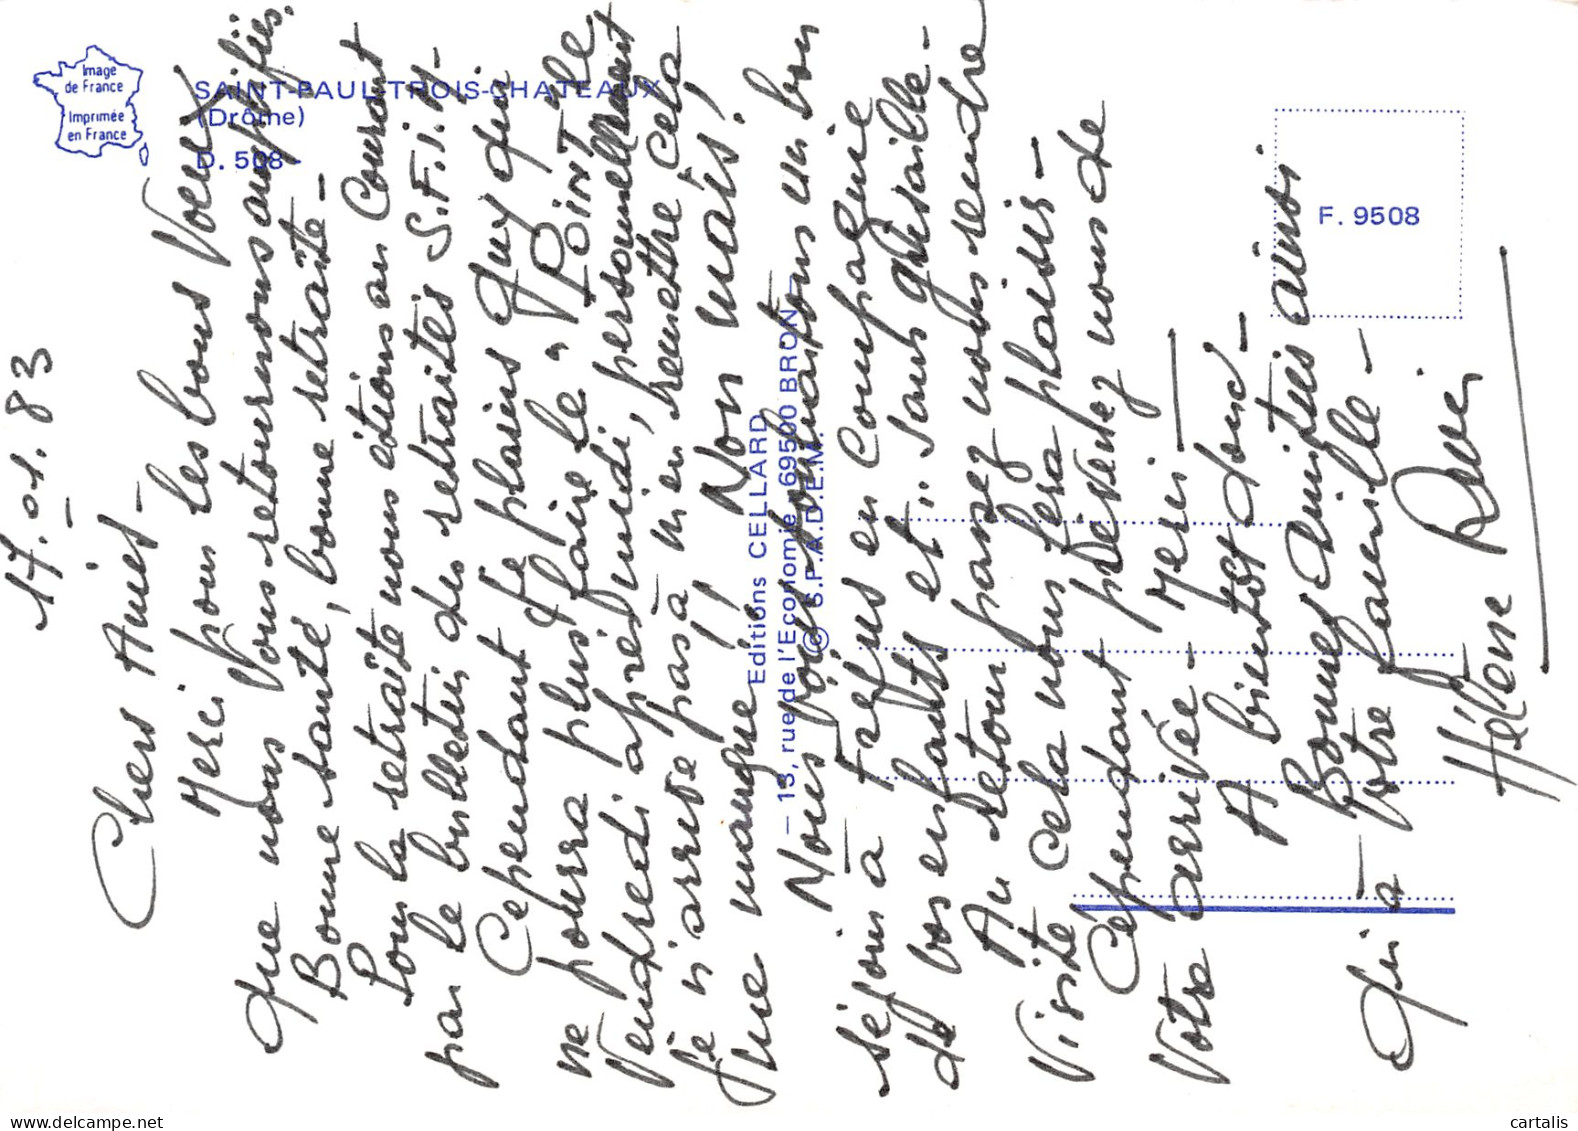 Image
de France
Imprimée
en France
SAINT-PAUL-TROIS-CHATEAUX
(Drôme)
D. 508 -
F. 9508
Editions CELLARD
- 13, rue de l'Economie 69500 BRON -
© S.P.A.D.E.M.
17.01.83
Chers Amis -
Merci pour les bons Voeux
que nous Vous retournons amplifiés.
Bonne santé, bonne retraite -
Pour la retraite nous étions au Courant
par le bulletin des retraités S.F.i.M -
Cependant de plaisirs Guy qui
ne pourra plus faire le "POiNT" le
Vendredi après midi, personnellement
Je n'arrive pas à m'en remettre, Cela
me manque!! Non mais!
Nous Vous souhaitons un bon
séjour à Fréjus en Compagnie
de vos enfants et.. sans grisaille -
Au retour pensez nous rendre
Visite Cela nous fera plaisir -
Cependant prévenez nous de
Votre arrivée - Merci -
A bientôt donc -
Bonnes Amitiés ainsi
qu'à Votre famille -
Hélène